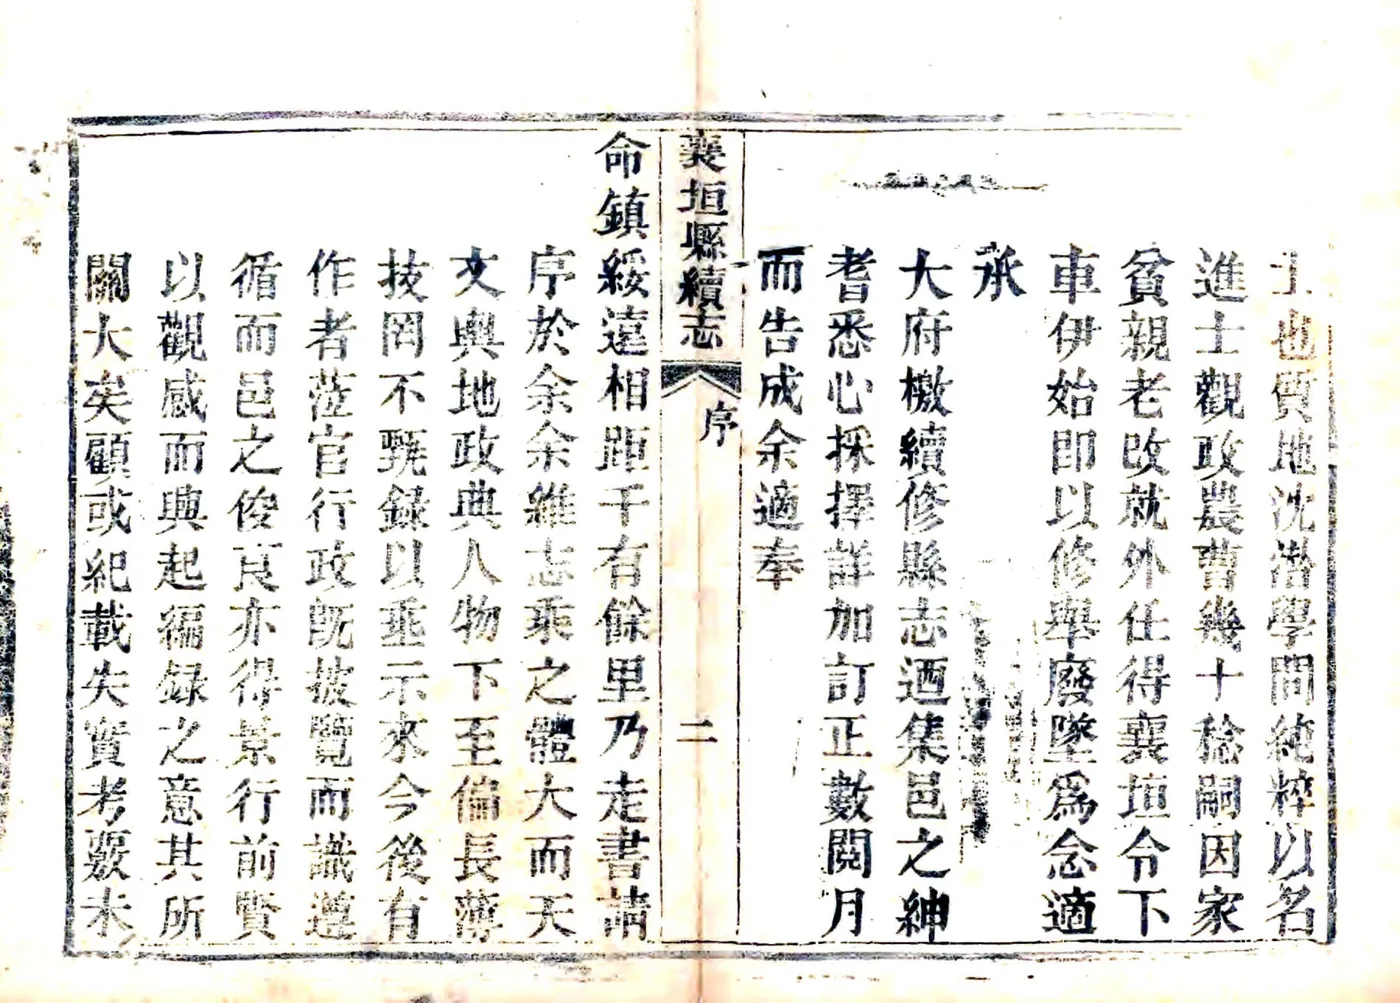 士也質地沈潛學問純粹以名
進士觀政農曹幾十稔嗣因家
貧親老改就外任得襄垣令下
車伊始即以修舉廢墜爲念適
承
大府檄續修縣志迺集邑之紳
耆悉心採擇詳加訂正數閱月
而告成余適奉
襄垣縣續志 序 二
命鎮綏遠相距千有餘里乃走書請
序於余余維志乘之體大而天
文輿地政典人物下至偏長薄
技罔不甄錄以垂示來今後有
作者蒞官行政旣披覽而識遵
循而邑之俊良亦得景行前賢
以觀感而興起編録之意其所
關大矣顧或紀載失實考覈未